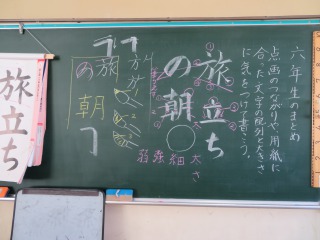 六年生のまとめ
点画のつながりや用紙に
合った文字の配列と大きさ
に気をつけて書こう。
旅立ち
の朝
太さ
細
旅
の朝
旅立ち